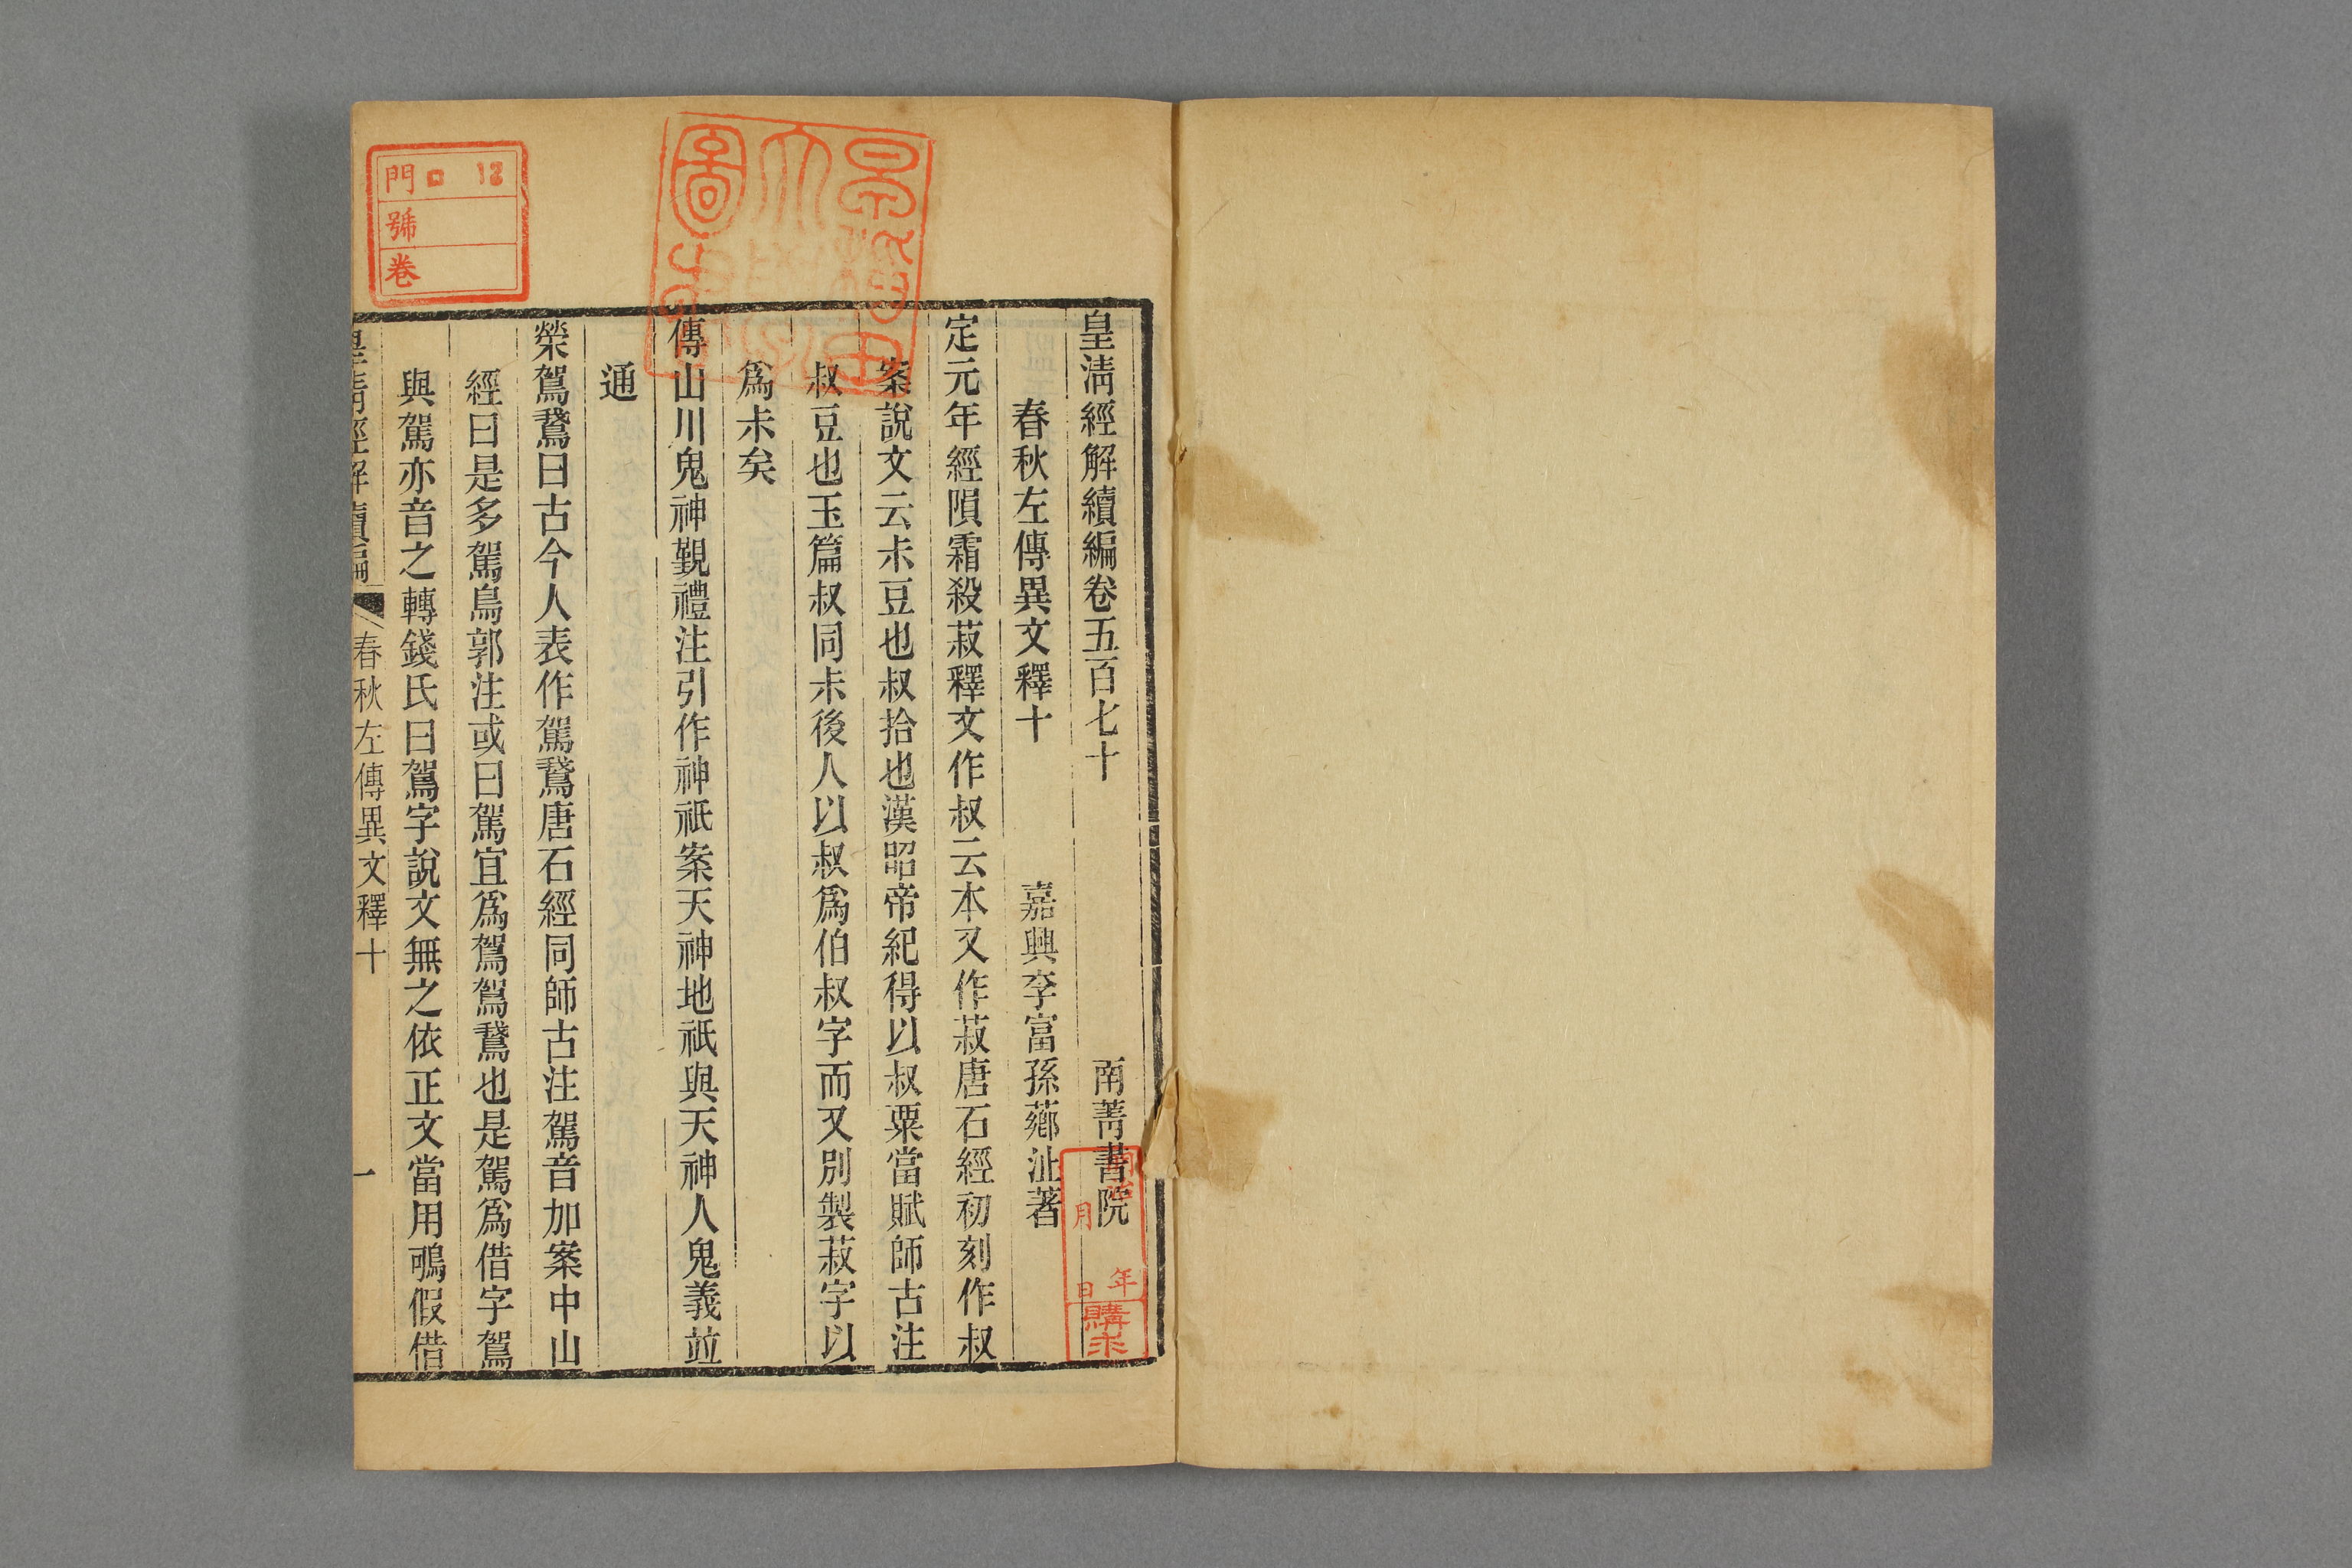 皇淸經解續編卷五百七十
南菁書院
春秋左傳異文釋十
嘉興李富孫薌沚著
定元年經隕霜殺菽釋文作叔云本又作菽唐石經初刻作叔
案說文云尗豆也叔拾也漢昭帝紀得以叔粟當賦師古注
叔豆也玉篇叔同尗後人以叔爲伯叔字而又別製菽字以
爲尗矣
傳山川鬼神覲禮注引作神祇案天神地祇與天神人鬼義竝
通
榮駕鵞曰古今人表作駕鵞唐石經同師古注駕音加案中山
經曰是多駕鳥郭注或曰駕宜爲鴐鴐鵞也是駕爲借字鴐
與駕亦音之轉錢氏曰鴐字說文無之依正文當用鴚假借
皇淸經解續編
春秋左傳異文釋十
一
門 口 12
號
卷
明治
年
月
日
購求